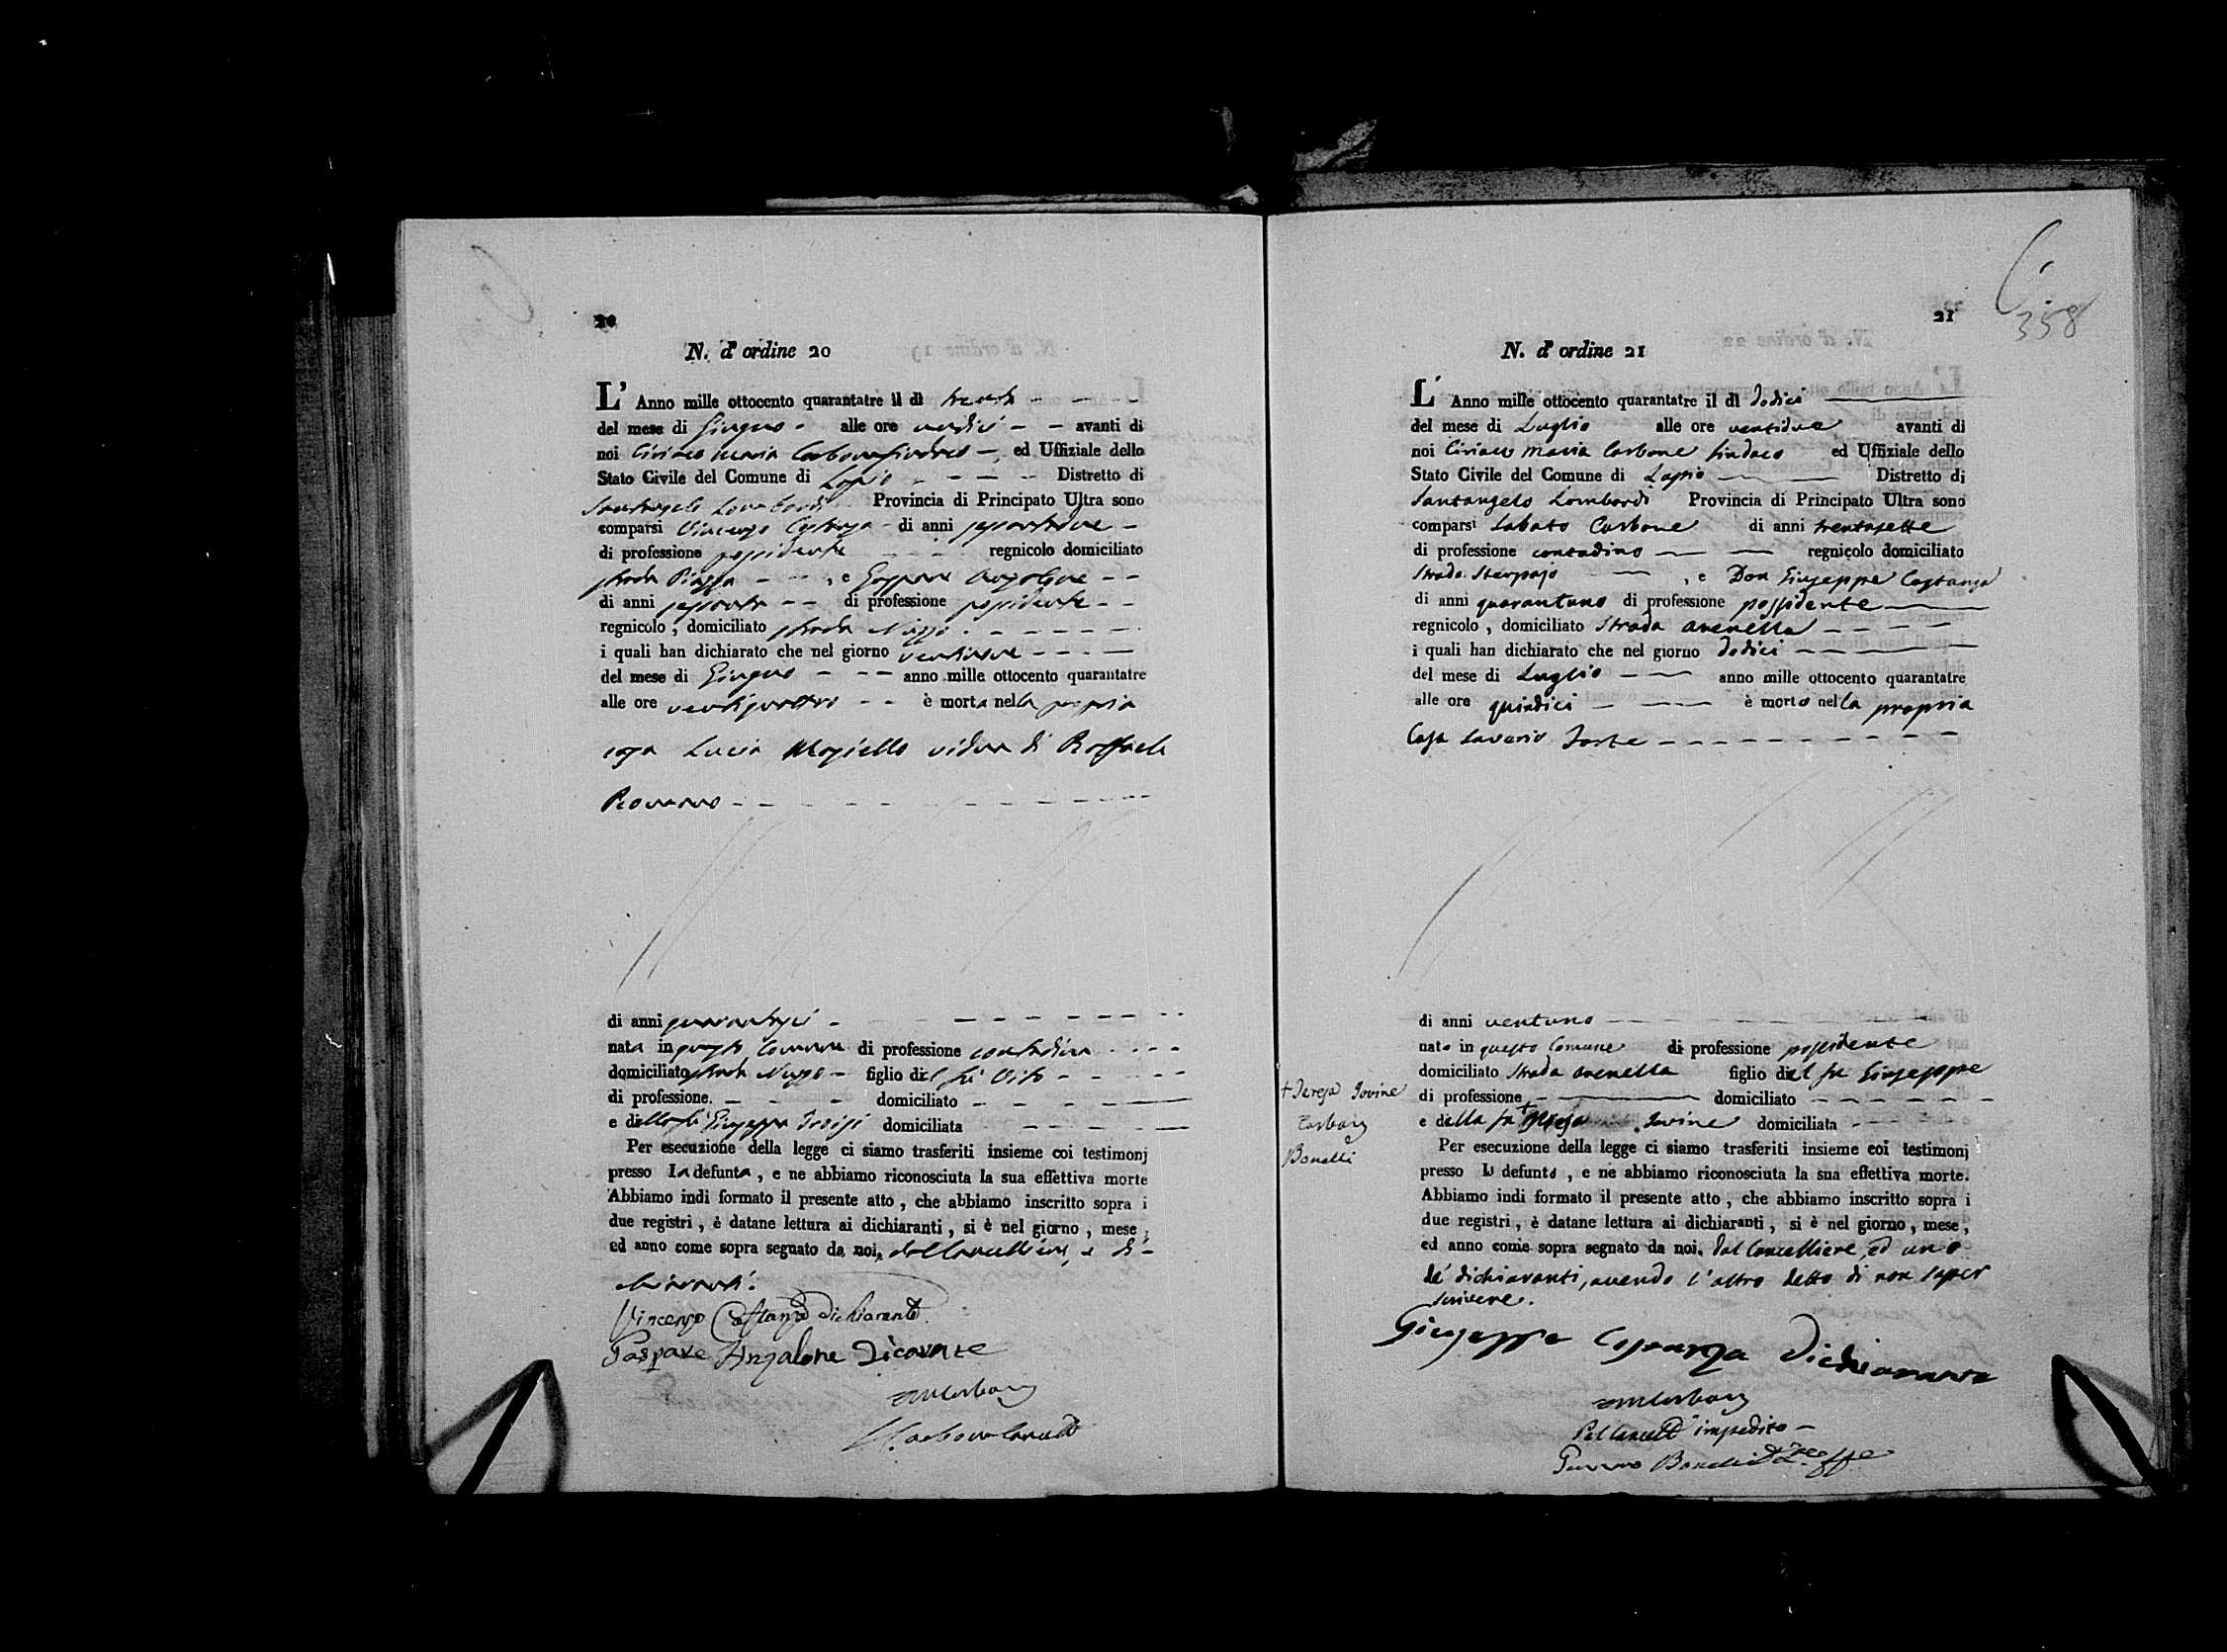 20
N. d' ordine 20
L' Anno mille ottocento quarantatre il dì trenta
del mese di Giugno alle ore undici avanti di
noi Ciriaco Maria Carbone Sindaco ed Uffiziale dello
Stato Civile del Comune di Lapio Distretto di
Santangelo Lombardi Provincia di Principato Ultra sono
comparsi Vincenzo Costanza di anni sessantadue
di professione possidente regnicolo domiciliato
strada Piazza , e Gaspare Anzalone
di anni sessanta di professione possidente
regnicolo , domiciliato strada
i quali han dichiarato che nel giorno
del mese di Giugno anno mille ottocento quarantatre
alle ore ventiquattro è morta nella propria
casa Lucia vidua di Raffaele
Romano
di anni
nata in questo Comune di professione contadina
domiciliato strada figlio del fù Vito
di professione domiciliato
e della fù Giuseppa domiciliata
Per esecuzione della legge ci siamo trasferiti insieme coi testimonj
presso la defunta , e ne abbiamo riconosciuta la sua effettiva morte
Abbiamo indi formato il presente atto , che abbiamo inscritto sopra i
due registri , è datane lettura ai dichiaranti , si è nel giorno , mese ,
ed anno come sopra segnato da noi, dal Cancelliere, e di-
chiaranti.
Vincenzo Costanza dichiarante
Gaspare Anzalone
21
358
N. d' ordine 21
L' Anno mille ottocento quarantatre il dì dodici
del mese di Luglio alle ore ventidue avanti di
noi Ciriaco Maria Carbone Sindaco ed Uffiziale dello
Stato Civile del Comune di Lapio Distretto di
Santangelo Lombardi Provincia di Principato Ultra sono
comparsi Sabato Carbone di anni trentasette
di professione contadino regnicolo domiciliato
Strada , e Don Giuseppe Costanza
di anni quarantuno di professione possidente
regnicolo , domiciliato Strada avenella
i quali han dichiarato che nel giorno dodici
del mese di Luglio anno mille ottocento quarantatre
alle ore quindici è morto nella propria
Casa Saverio Forte
di anni ventuno
nato in questo Comune di professione possidente
domiciliato Strada avenella figlio del fu Giuseppe
di professione domiciliato
e della fu + Iovine domiciliata
+ Teresa Iovine
Carbone
Bonelli
Per esecuzione della legge ci siamo trasferiti insieme coi testimonj
presso lo defunto , e ne abbiamo riconosciuta la sua effettiva morte.
Abbiamo indi formato il presente atto , che abbiamo inscritto sopra i
due registri , è datane lettura ai dichiaranti , si è nel giorno , mese ,
ed anno come sopra segnato da noi, dal Cancelliere, ed uno
de' dichiaranti, avendo l'altro detto di non saper
scrivere.
Giuseppe Costanza Dichiarante
Pel Cancell. impedito